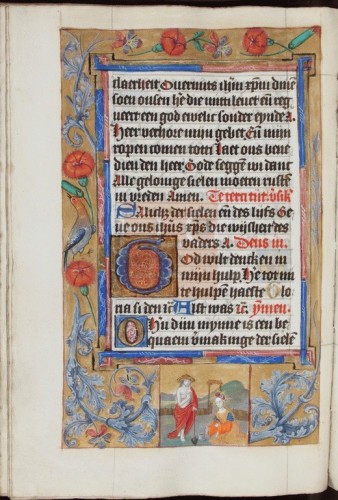 claerheit, Overmits ihm xpm dine
soen onsen he die mitti levet en reg
neert een god ewelic sonder eynde A
Heer verhore mijn gebet, En mijn
ropen comen totti Laet ons bene
dien den heer, Gode seggen wi danc
Alle gelovige sielen moeten rusten
in vreden Amen.
Salich der sielen en des lijfs Ge
ve ons ihus xps die wijsheit des
vaders A. Deus in.
God wilt dencken in
mijn hulp, He tot mi
te hulpen haeste Glo
ria si den Alst was
O Ihu dijn mynne is een be
quaem vmakinge der sielen